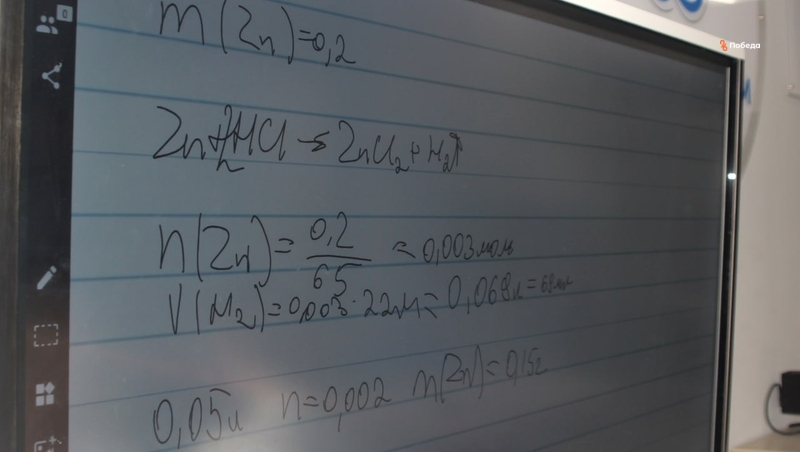 Победа
m(Zn)=0,2
Zn+2HCl→ZnCl₂+H₂↑
n(Zn)=0,2/65=0,003моль
V(H₂)=0,003·22,4=0,068л=68мл
0,05л n=0,002 m(Zn)=0,15г